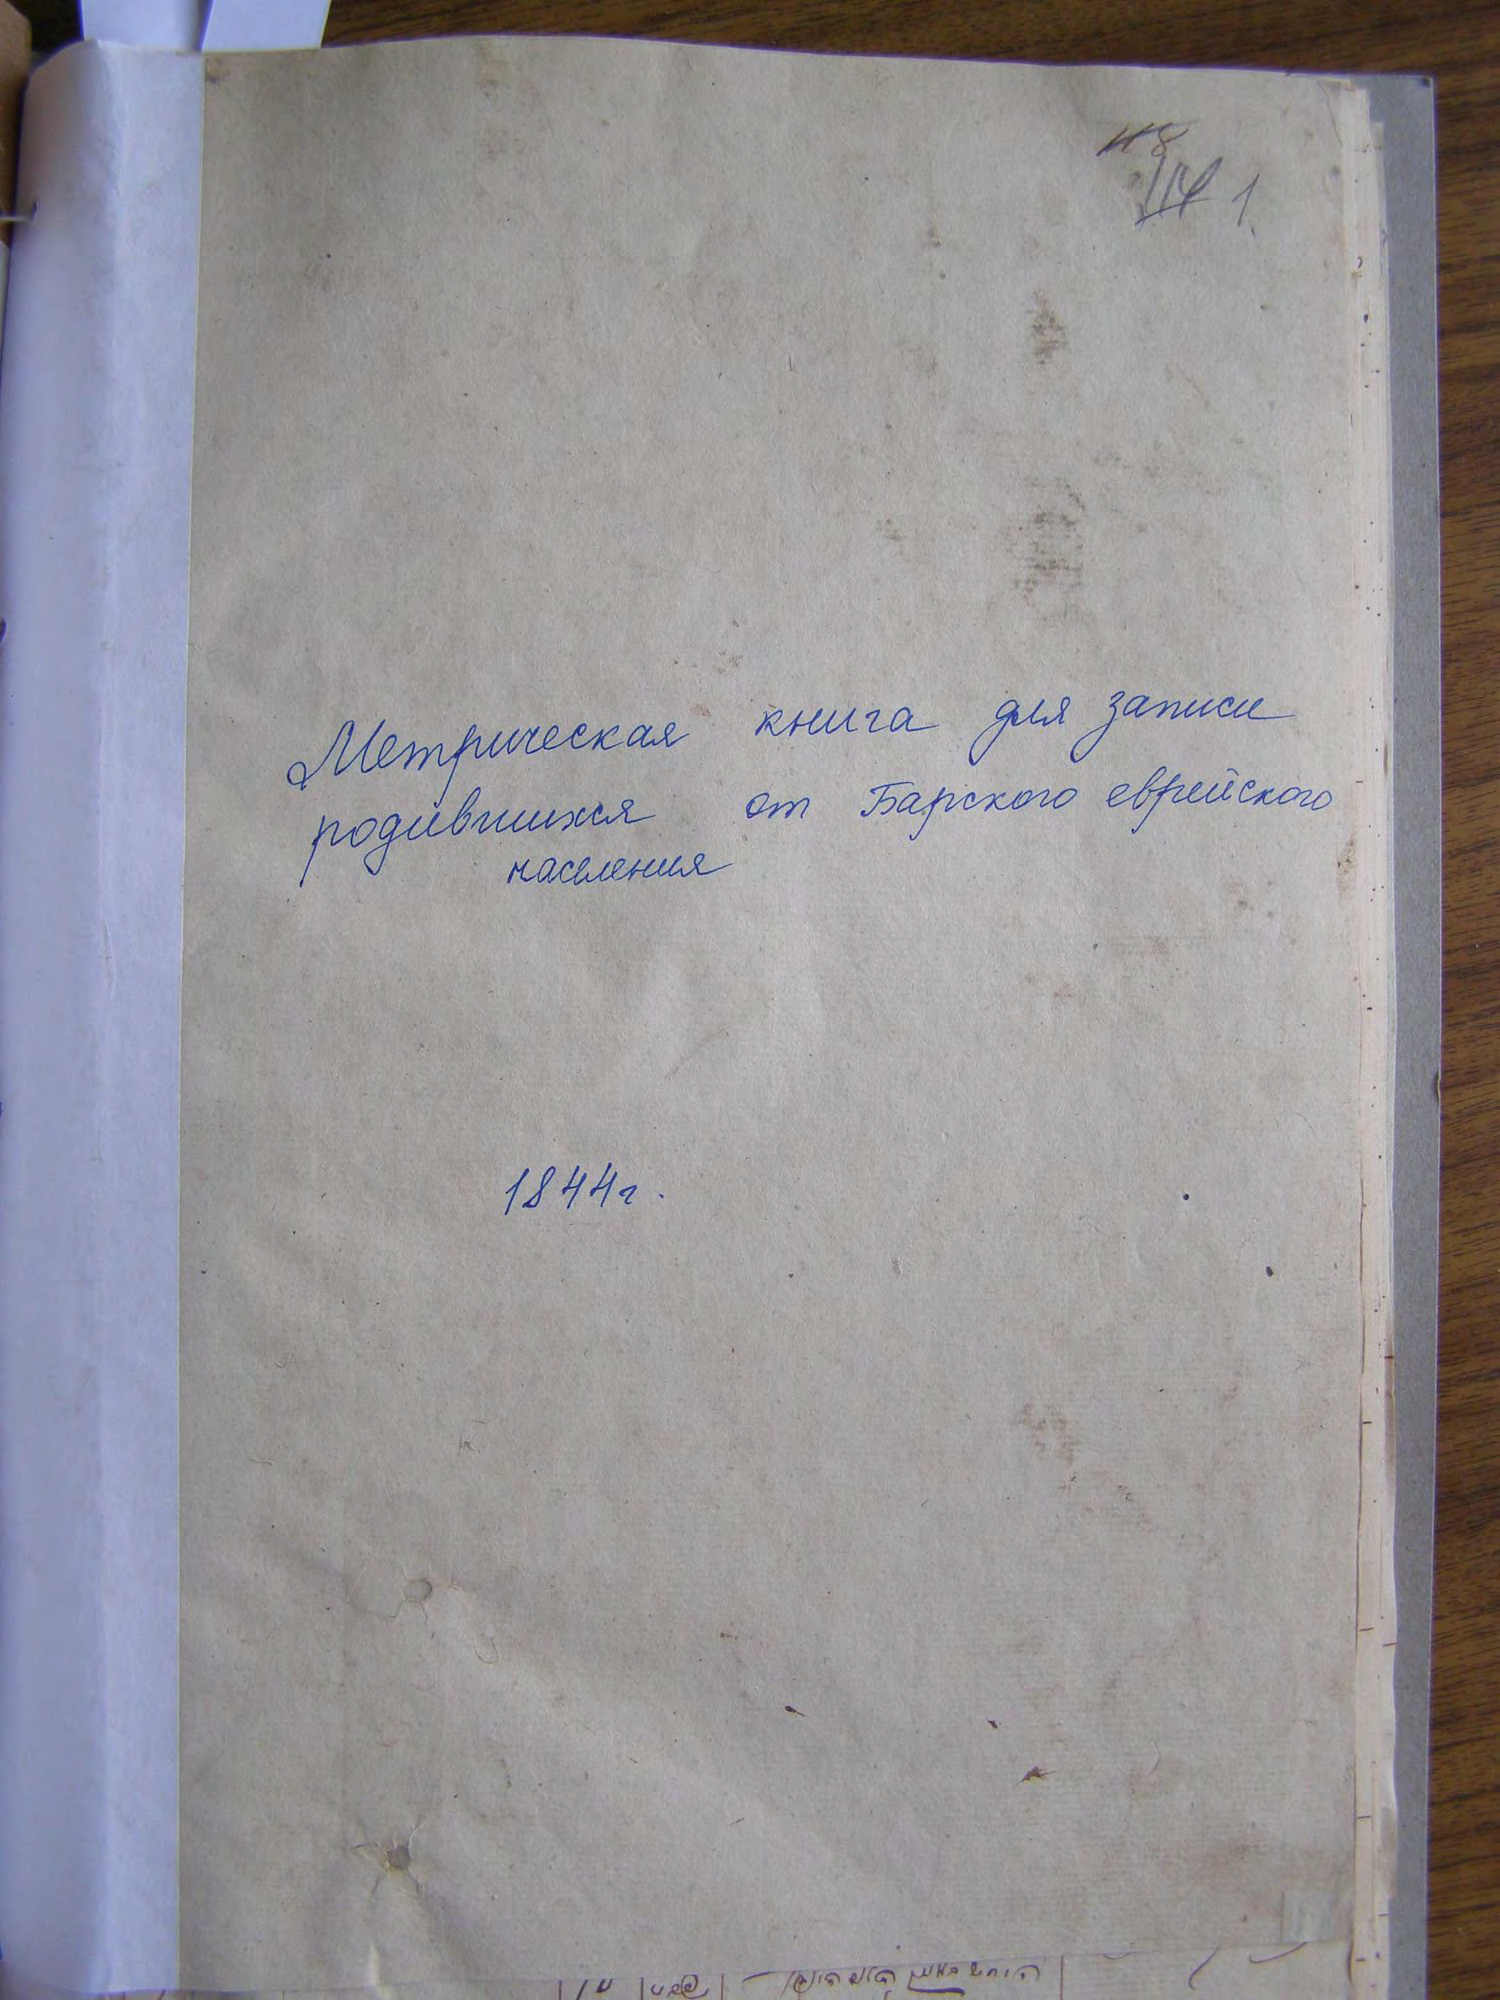 1.
Метрическая книга для записи
родившихся от Барского еврейского
населения
1844г.